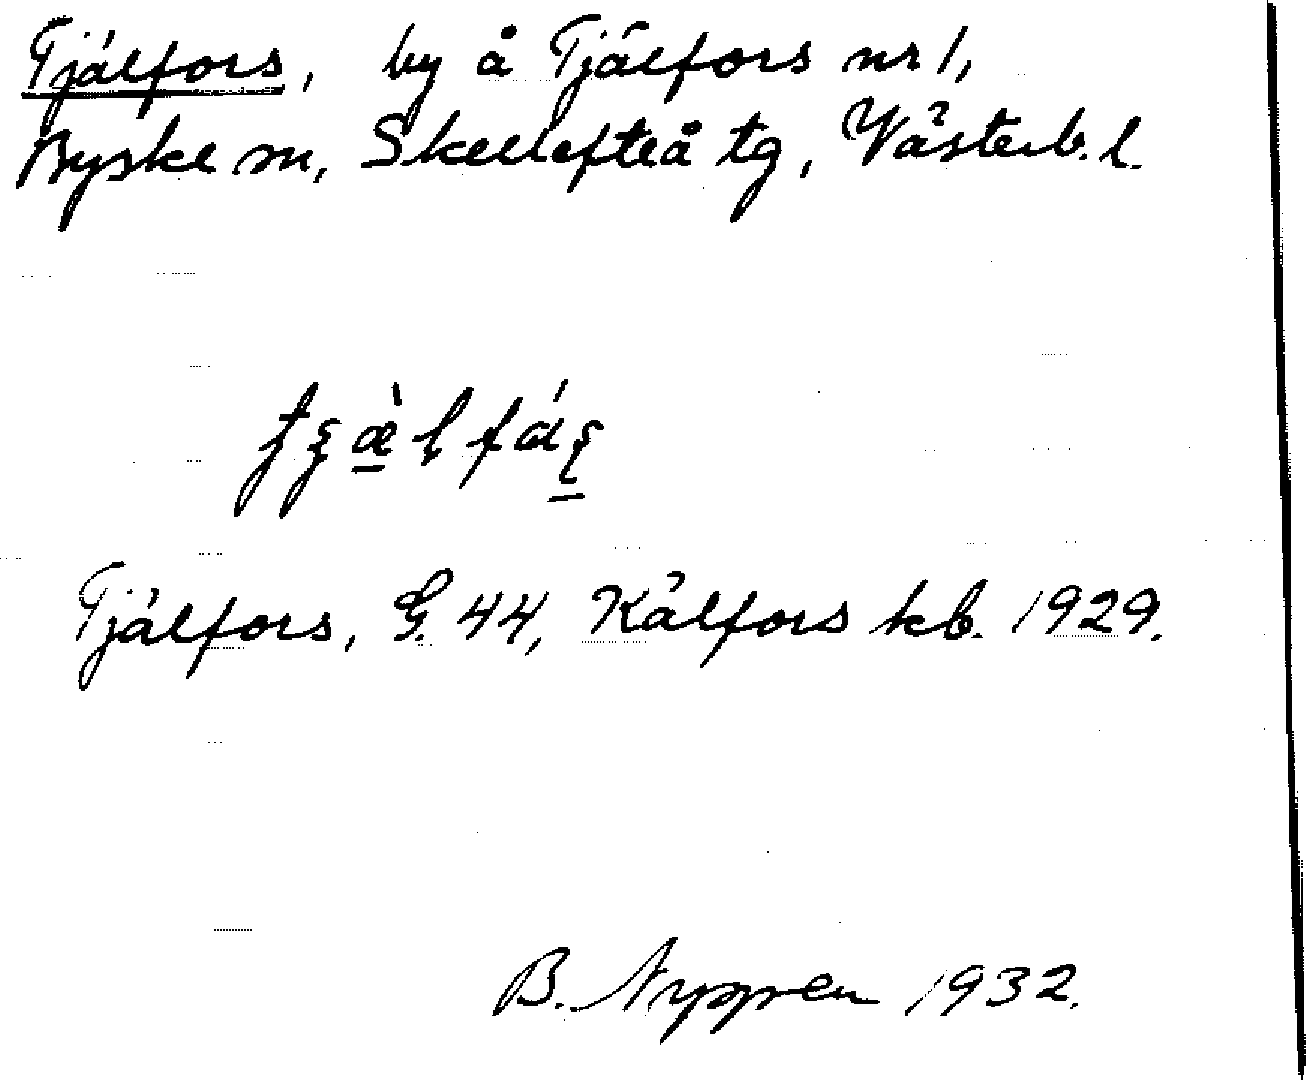 Tjälfors, by å Tjälfors nr 1,
Byske sn, Skellefteå tg, Västerb. l.
Tjälfors, G. 44, Källfors kb. 1929.
B. 1932.